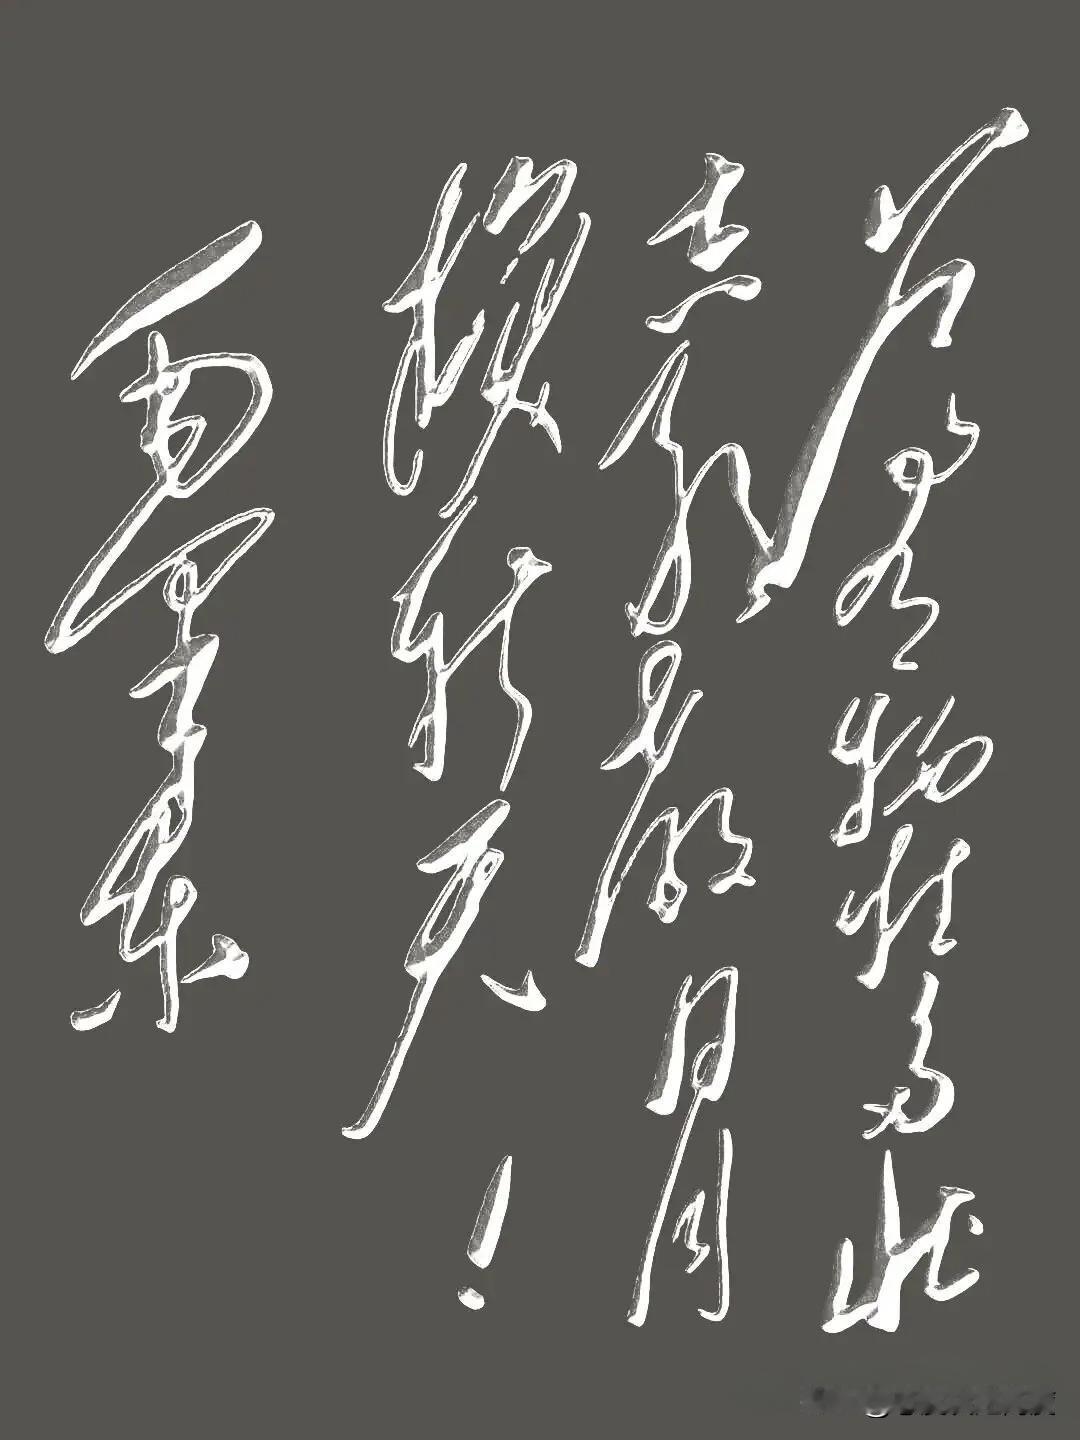 为有牺牲多壮
志敢教日月
换新天！
毛泽东